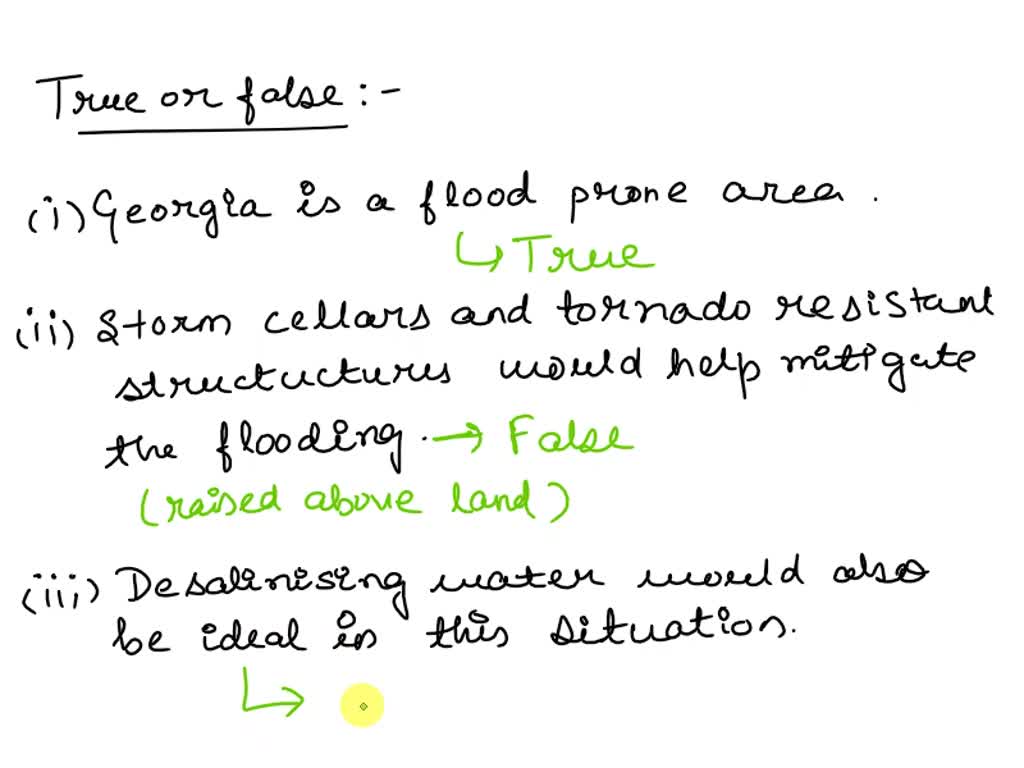 True or false :-
(i) Georgia is a flood prone area .
↳ True
(ii) Storm cellars and tornado resistant
structuctures would help mitigate
the flooding. → False
(raised above land)
(iii) Desalinising water would also
be ideal in this situation.
↳